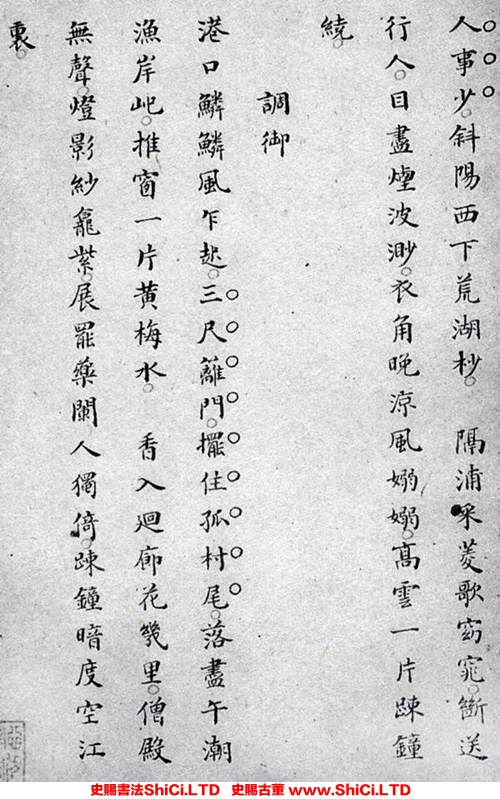 人事少。斜陽西下荒湖杪。　隔浦采菱歌窈窕。斷送
行人。目盡煙波渺。衣角晚涼風嫋嫋。高雲一片踈鐘
繞。
調御
港口鱗鱗風乍起。三尺籬門。擺住孤村尾。落盡午潮
漁岸圮。推窗一片黃梅水。　香入廻廊花幾里。僧殿
無聲。燈影紗龕紫。展罷藥闌人獨倚。踈鐘暗度空江
裏。
史賜書法ShiCi.LTD　史賜古董 www.ShiCi.LTD